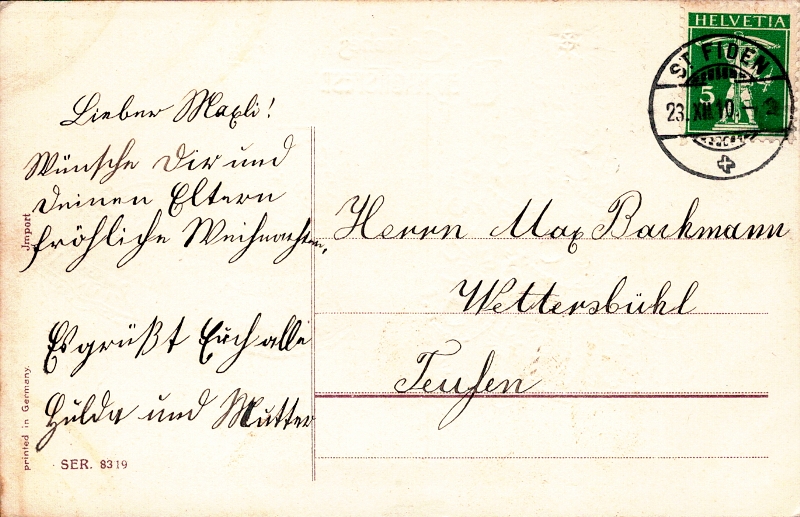 HELVETIA
5
ST. FIDEN
23. XII. 10.
Lieber Maxli!
Wünsche Dir und
Deinen Eltern
fröhliche Weihnachten.
Es grüßt Euch alle
Hulda und Mutter
Herrn Max Backmann
Wettersbühl
Teufen
Import
printed in Germany.
SER. 8319